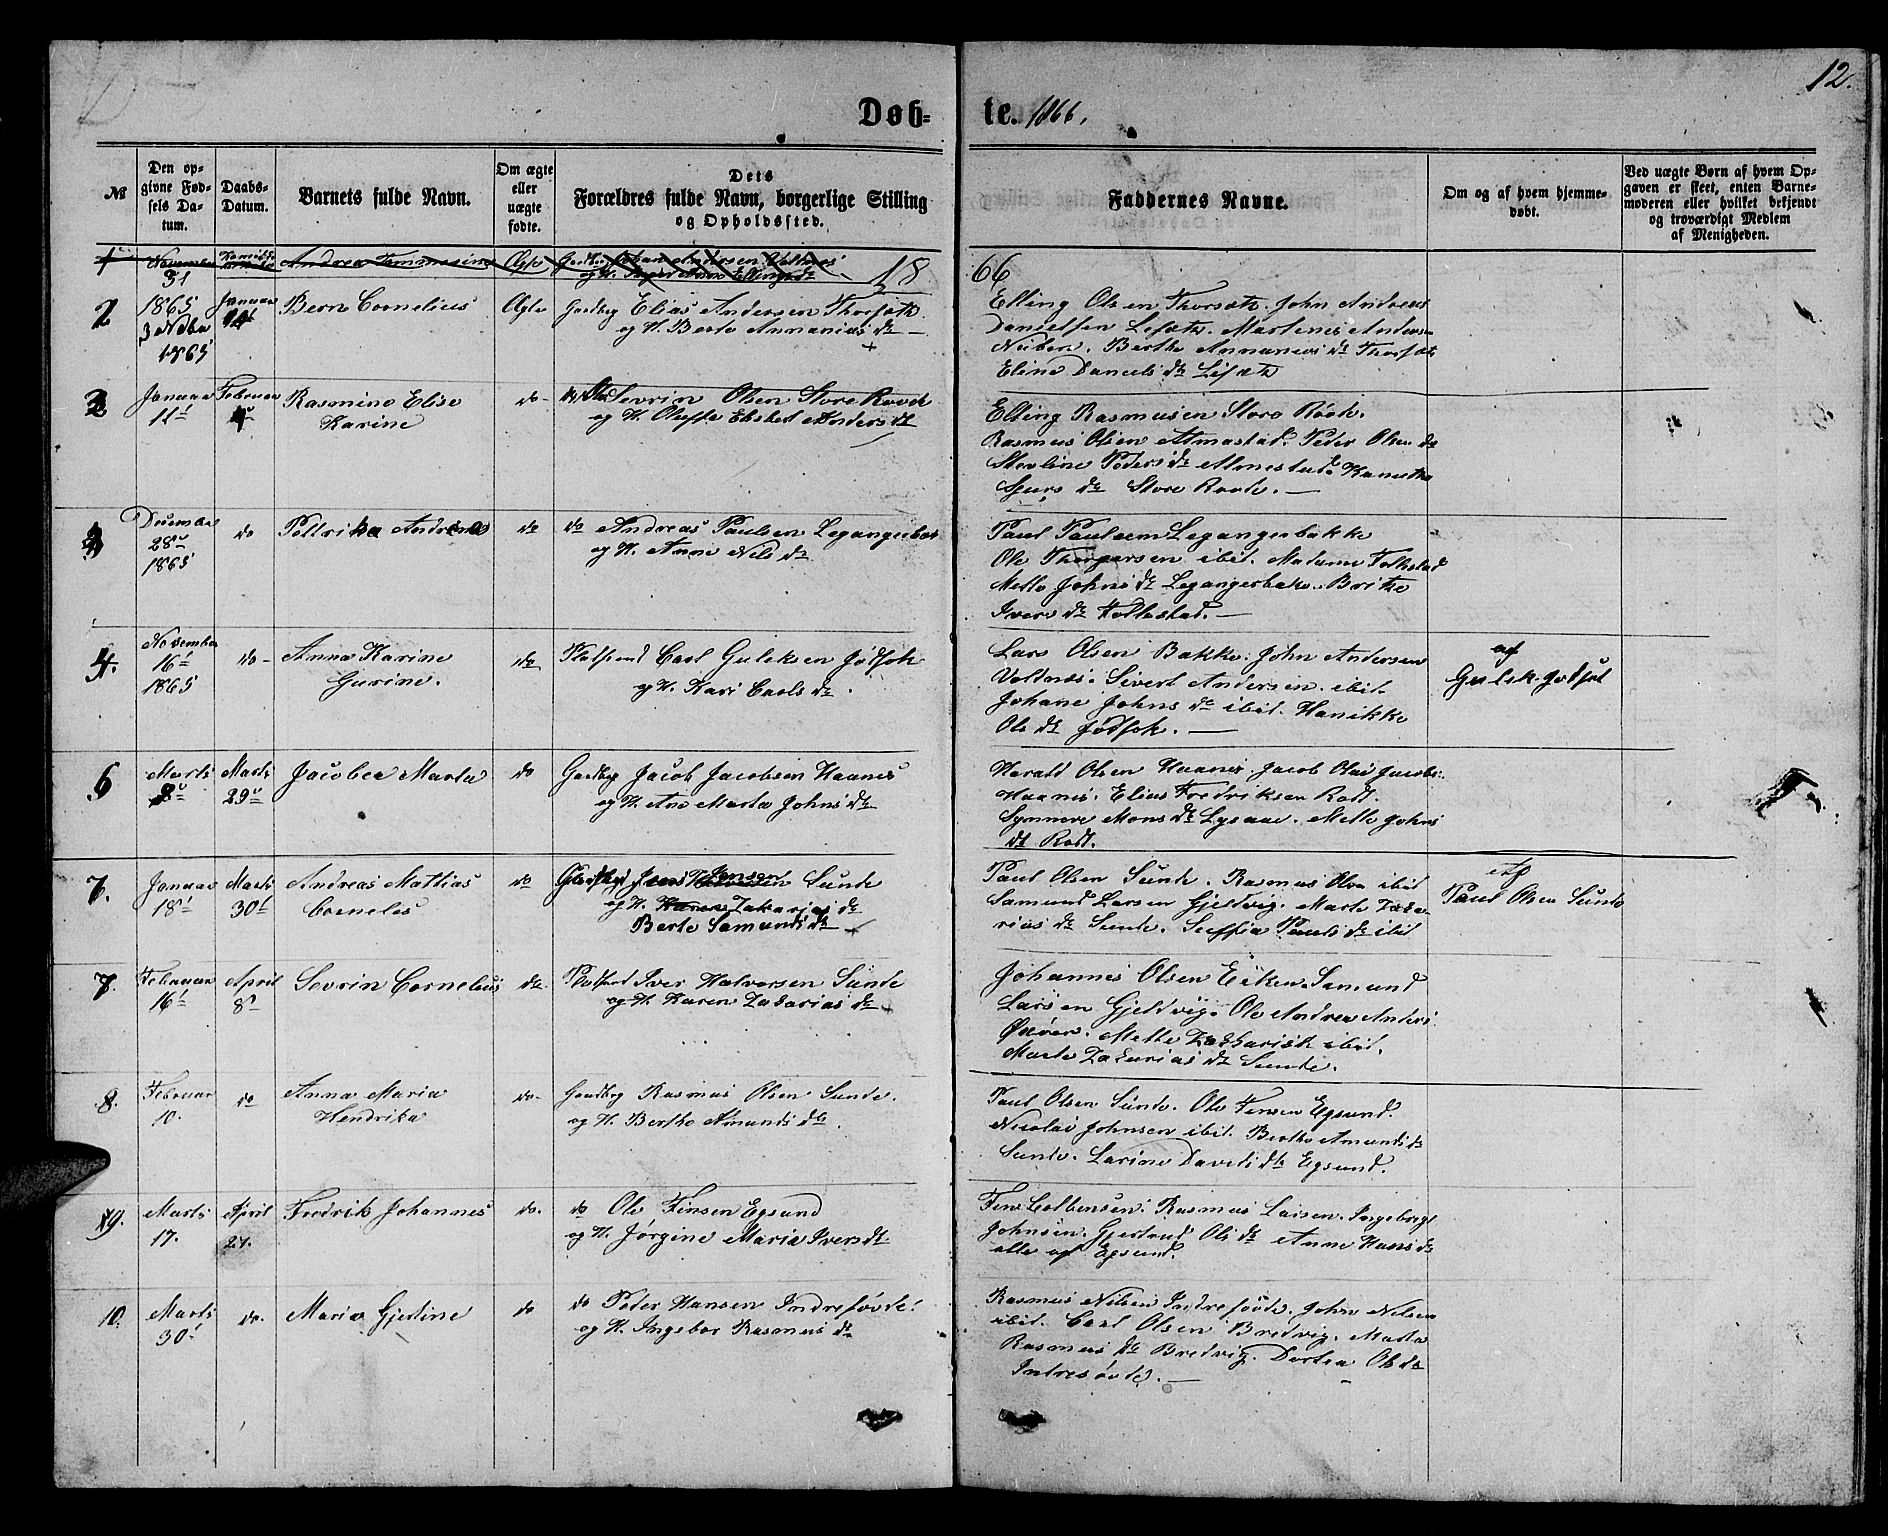 12.
Døb-
te. 1866.
№
Den op-
givne Fød-
sels Da-
tum.
Daabs-
Datum.
Barnets fulde Navn.
Om ægte
eller
uægte
fødte.
Dets
Forældres fulde Navn, borgerlige Stilling
og Opholdssted.
Faddernes Navne.
Om og af hvem hjemme-
døbt.
Ved uægte Børn af hvem Op-
gaven er skeet, enten Barne-
moderen eller hvilket bekjendt
og troværdigt Medlem
af Menigheden.
1 November 31 Andrea Ægte
18
66
2
1865
1865
Januar
14
Bern Cornelius
Ægte
Gaardbrg Elias Andersen Thorsæth
og H. Berte Annanias dt
Elling Olsen Thorsæth. John Andreas
Danielsen Lefæth. Martenes Anders
Berthe Annanias dt Thorsæth
Eline Daniels dt Lefæth
Januar
11
Februar
Rasmine Elise
Karine
do
Sevrin Olsen Store Roode
og H. Oluffa Elisbet Anders dt
Elling Rasmusen Store Roode.
Rasmus Olsen Almestad. Peder Olsen do
Steoline Peders dt Almestad.
dt Store Roode.
3
December
28
1865
do
Petrika Andrena
do
do Andreas Paulsen Legangerbak
og H. Anne Nils dt
Paul Paulsen Legangerbakke
Ole ibid. Folkstad
Mette Johns dt Legangerbake. Britte
Ivers dt Folkestad.
4.
November
16
1865
do
Anna Karine
Gurine.
do
Carl Guleksen Jødsok
og H. Kari Carls dt.
Lars Olsen Bakke. John Andersen
Voldnæs. Sivert Andersen. ibid.
Johane Johns dt ibid. Hanikke
Ols dt Jødsok.
af
Gulek Jødsok
6
Marts
8
Marts
29
Jacobea Marta
do
Gaardbrg Jacob Jacobsen Haanes
og H. Ane Marta Johns dt
Harald Olsen Haanes. Jacob Olai Jacobs:
Haanes. Elias Fredriksen Rodt.
Synneve Mons dt Lysaae. Mette Johns
dt Rodt.
7.
Januar
18
Marts
30
Andreas Mattias
Cornelis
do
Jens Jensen Sunde
og H. Zakarias dt
Berte Samunds dt
Paul Olsen Sunde. Rasmus Olsa ibid
Samund Larsen Gjeldvig. Marte Zaka-
rias dt Sunde. Seffia Pauls dt ibid
af
Paul Olsen Sunde
7.
Februar
16
April
8
Sevrin Cornelius
do
Iver Halvorsen Sunde
og H. Karen Zakarias dt
Johannes Olsen Eiken. Samund
Larsen Gjeldvig. Ole Andrea Anders
Mette Zachariæ ibid.
Marte Zakarias dt Sunde.
8.
Februar
10.
do
Anna Maria
Hendrika
do
Gaardbrg Rasmus Olsen Sunde.
og H. Berthe Amunds dt.
Paul Olsen Sunde. Ole Fensen Egsund.
Nicolai Johnsen ibid. Berthe Amunds dt
Sunde. Larine Davids dt Egsund.
9.
Marts
17.
April
24.
Fredrik Johannes
do.
do Ole Finsen Egsund
og H. Jørgine Maria Ivers dt.
Fens Colbensen. Rasmus Larsen. Ingebregt
Johnsen. Gjertrud Ols dt Anne Hans dt
alle af Egsund.
10.
Marts
30
do.
Maria Gjertine
do
do Peder Hansen Indresøvde
og H. Ingebor Rasmus dt
Rasmus Nilsen Indresøvde. John Nilsen
ibid. Carl Olsen Bredvig. Marta
Rasmus dt Bredvig. Dortea Ols dt
Indresøvde.